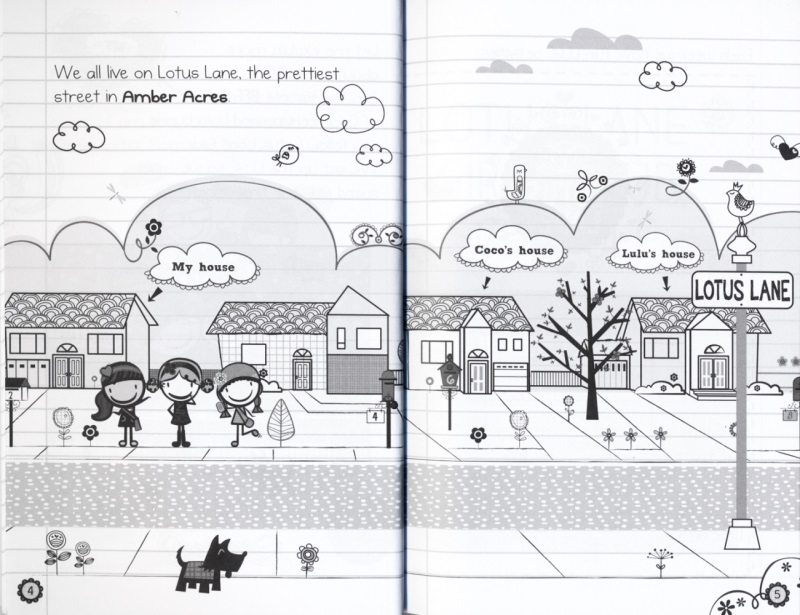 We all live on Lotus Lane, the prettiest
street in Amber Acres.
My house
Coco's house
Lulu's house
LOTUS LANE
2
4
6
4
5